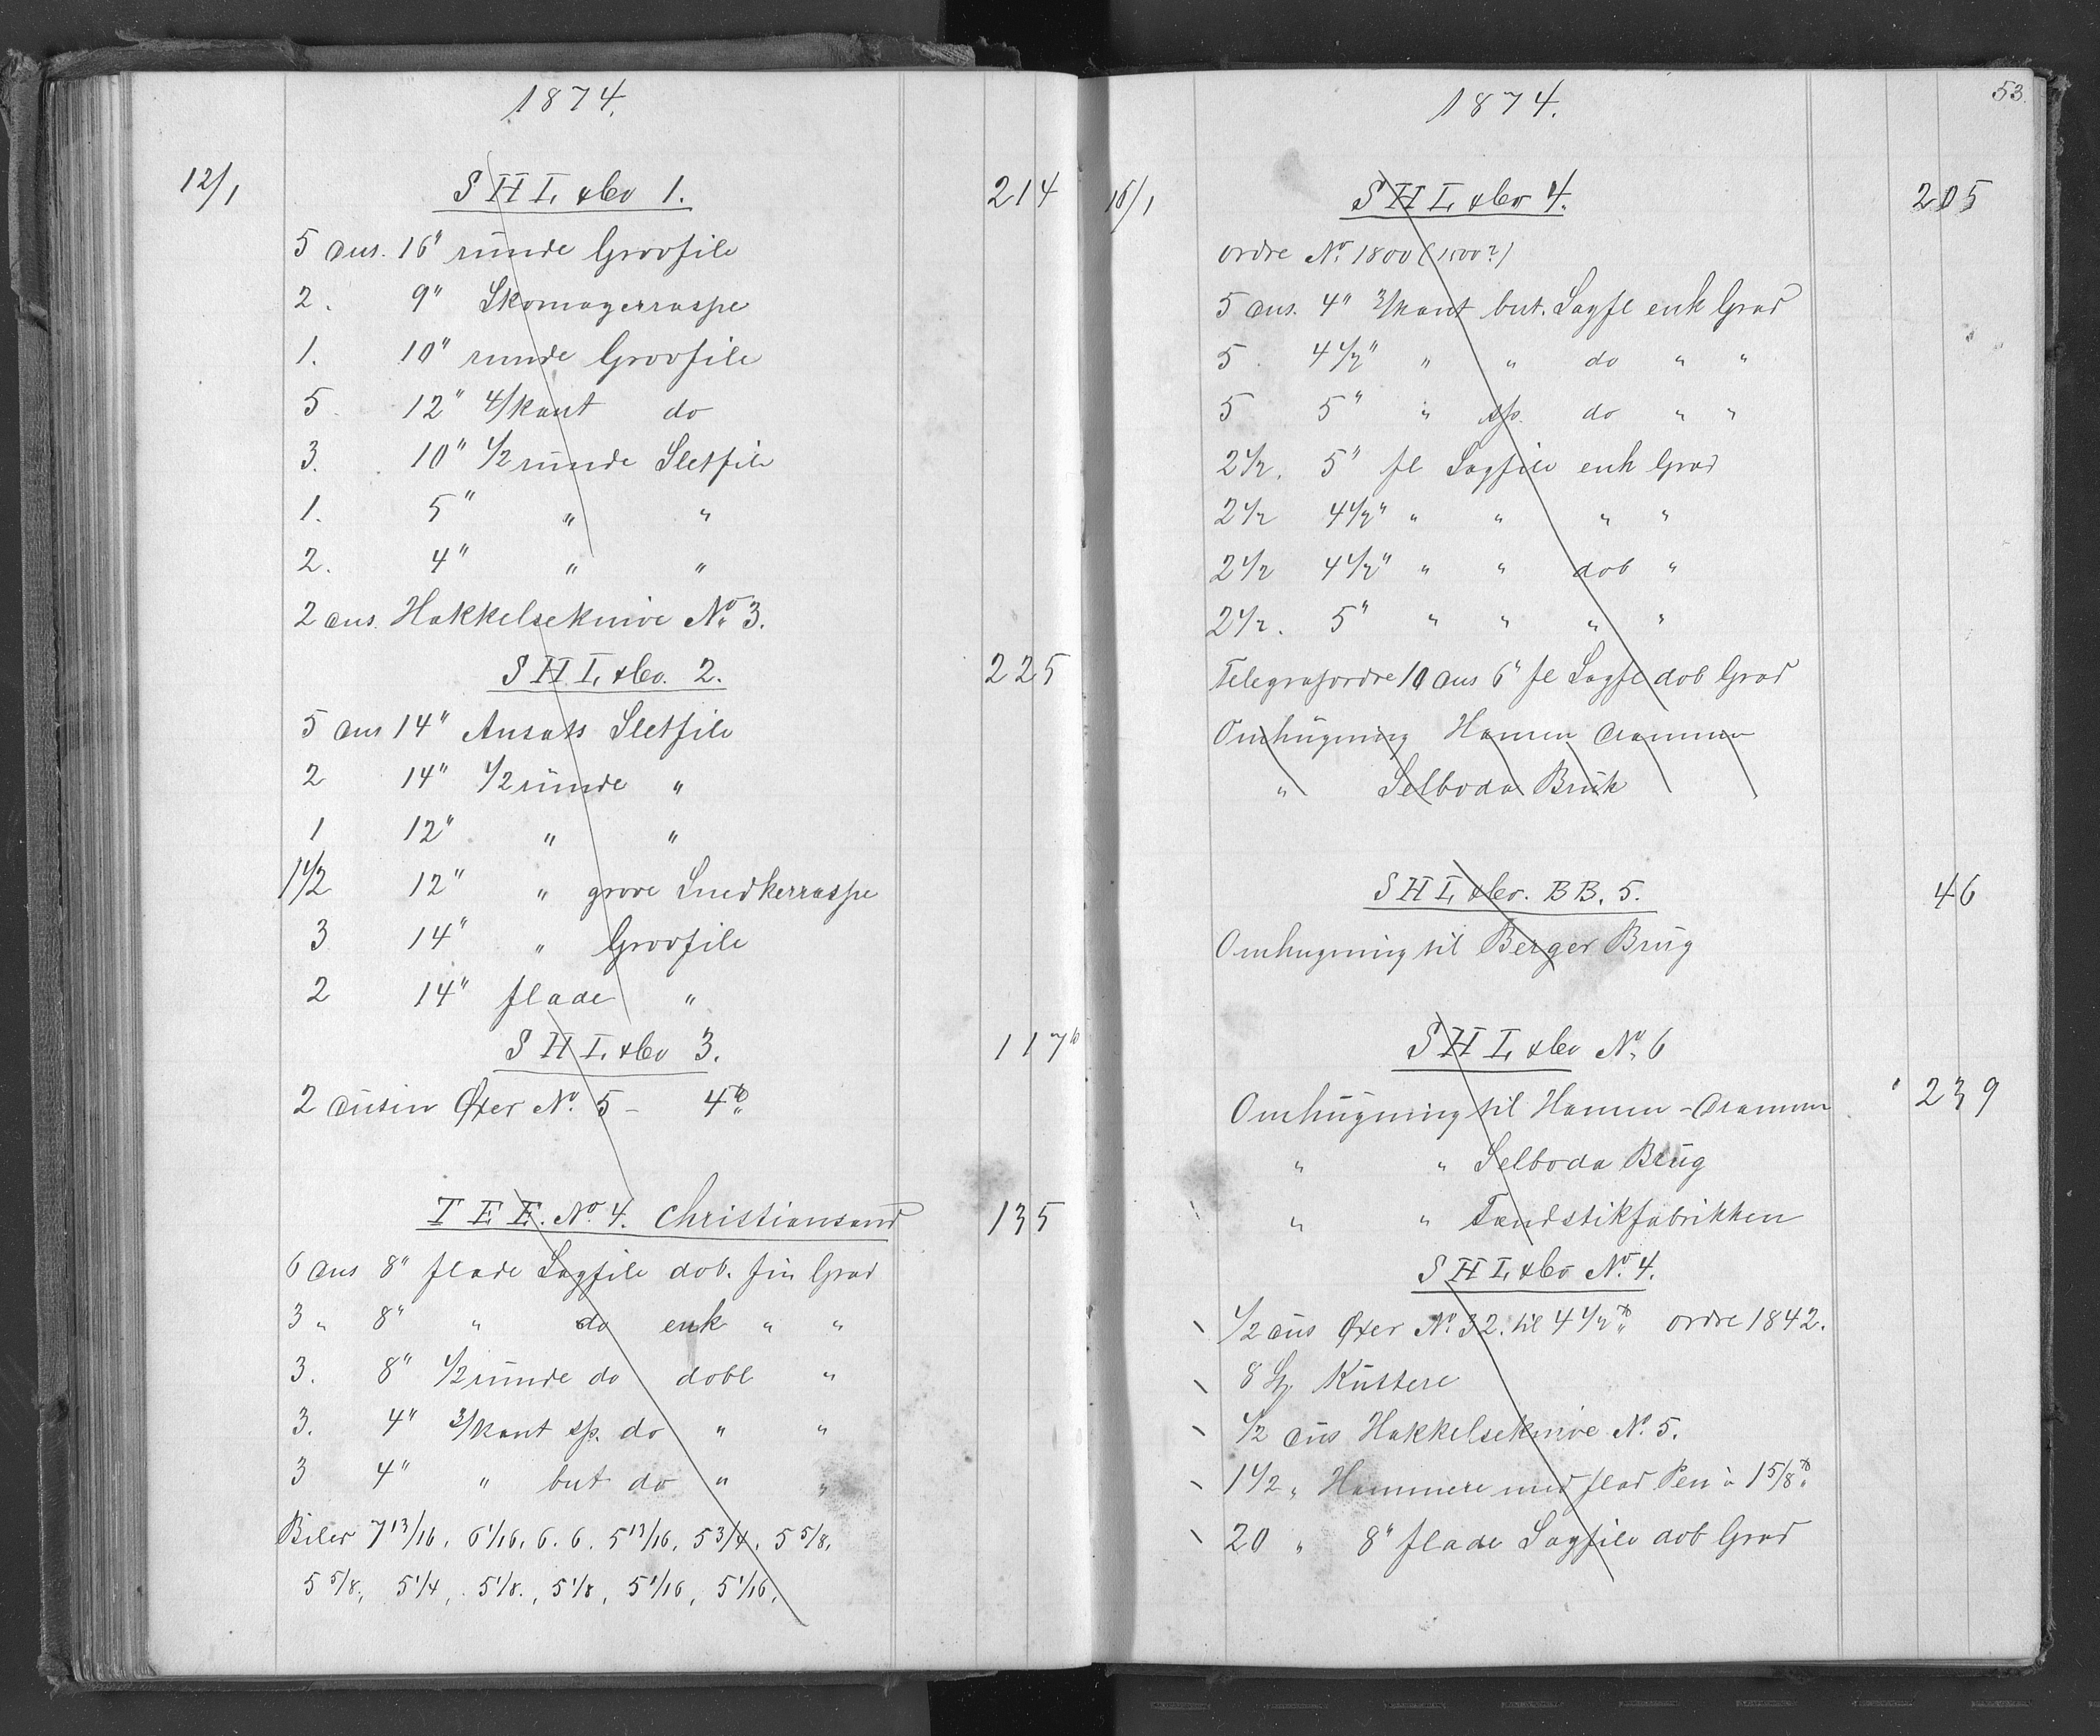 1874.
12/1 S H L & Co 1. 214
5 dus. 16" runde Grovfile
2. 9" Skomagerraspe
1. 10" runde Grovfile
5. 12" 4/kant do
3. 10" 1/2 runde Sletfile
1. 5" " "
2. 4" " "
2 dus. Hakkelseknive No 3.
S H L & Co. 2. 225
5 dus 14" Ansats Sletfile
2 14" 1/2 runde "
1 12" " "
1 1/2 12" " grove Snedkerraspe
3 14" " Grovfile
2 14" flade "
S H L & Co 3. 117
2 dusin Øxer No. 5 - 4 ℔
T E E. No. 4. Christiansand 135
6 dus 8" flade Sagfile dob. fin Grad
3 " 8" " do enk " "
3. 8" 1/2 runde do dobl "
3. 4" 3/kant sp. do " "
3 4" " but do " "
Biler 7 13/16, 6 1/16, 6. 6. 5 13/16, 5 3/4, 5 5/8,
5 5/8, 5 1/4, 5 1/8., 5 1/8, 5 1/16, 5 1/16,
53.
1874.
/1 S H L & Co 4. 205
ordre No. 1800 (1500?)
5 dus. 4" 3/kant but. Sagfl enk Grad
5. 4 1/2" " " do " "
5 5" " sp. do " "
2 1/2. 5" fl Sagfile enk Grad
2 1/2 4 1/2" " " " "
2 1/2 4 1/2" " " dob "
2 1/2. 5" " " " "
Telegrafordre 10 dus 6" fl Sagfl dob Grad
Omhugning Hamen Drammen
" Selboda Bruk
S H L & Co. BB. 5. 46
Omhugning til Berger Brug
S H L & Co No. 6
Omhugning til Hamen - Drammen 239
" " Selboda Brug
" " Tændstikfabrikken
S H L & Co No. 4.
1/2 dus Øxer No. 32. til 4 1/2 ℔ ordre 1842.
8 St. Kuttere
1/2 dus Hakkelseknive No. 5.
1 1/2 " Hammere med flad Pen à 1 5/8 ℔
20 " 8" flade Sagfile dob Grad